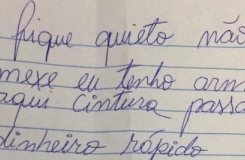 fique quieto não
mexe eu tenho arm
aqui cintura passa
dinheiro rápido